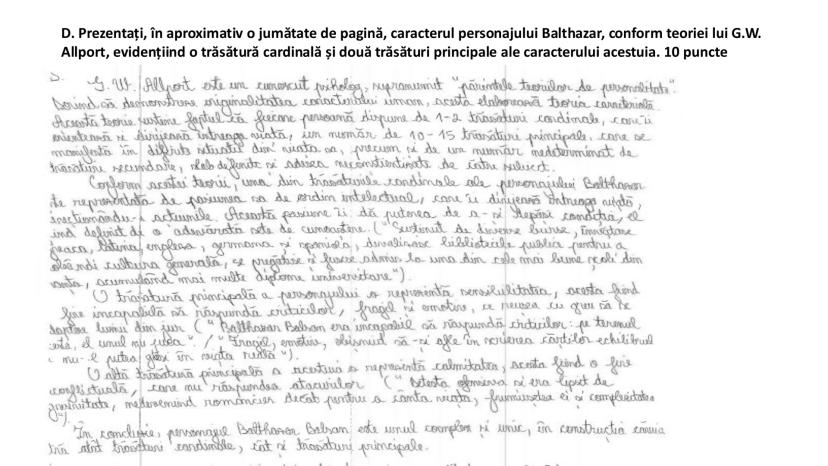 D. Prezentați, în aproximativ o jumătate de pagină, caracterul personajului Balthazar, conform teoriei lui G.W.
Allport, evidențiind o trăsătură cardinală și două trăsături principale ale caracterului acestuia. 10 puncte
G. W. Allport este un cunoscut psiholog, supranumit "părintele teoriilor de personalitate".
Dorind să demonstreze originalitatea caracterului uman, acesta elaborează teoria caracterială.
Această teorie susține faptul că fiecare persoană dispune de 1-2 trăsături cardinale, care îi
orientează și dirijează întreaga viață, un număr de 10-15 trăsături principale, care se
manifestă în diferite situații din viața sa, precum și de un număr nedeterminat de
trăsături secundare, slab definite și adesea neconștientizate de către subiect.
Conform acestei teorii, una din trăsăturile cardinale ale personajului Balthazar
te reprezentată de pasiunea sa de ordin intelectual, care îi dirijează întreaga viață,
direcționându-i acțiunile. Această pasiune îi dă puterea de a-și depăși condiția, el
ind definit de o adevărată sete de cunoaștere. ("Susținut de diverse burse, învățase
greaca, latina, engleza, germana și spaniola, devalizase bibliotecile publice pentru a
obândi cultura generală, se pregătise și fusese admis la una din cele mai bune școli din
ranța, acumulând mai multe diplome universitare").
O trăsătură principală a personajului o reprezintă sensibilitatea, acesta fiind
fire incapabilă să răspundă criticilor, fragil și emotiv, ce reușea cu greu să se
adapteze lumii din jur ("Balthazar Balsan era incapabil să răspundă criticilor: pe terenul
esta, el unul nu juca". / "Fragil, emotiv, reușind să-și afle în scrierea cărților echilibrul
nu-l putea găsi în viața reală").
O altă trăsătură principală a acestuia o reprezintă calmitatea, acesta fiind o fire
conflictuală, care nu răspundea atacurilor ("Detesta ofensiva și era lipsit de
gresivitate, nedevenind romancier decât pentru a cânta viața, frumusețea ei și complexitatea
").
În concluzie, personajul Balthazar Balsan este unul complex și unic, în construcția căruia
tră atât trăsături cardinale, cât și trăsături principale.